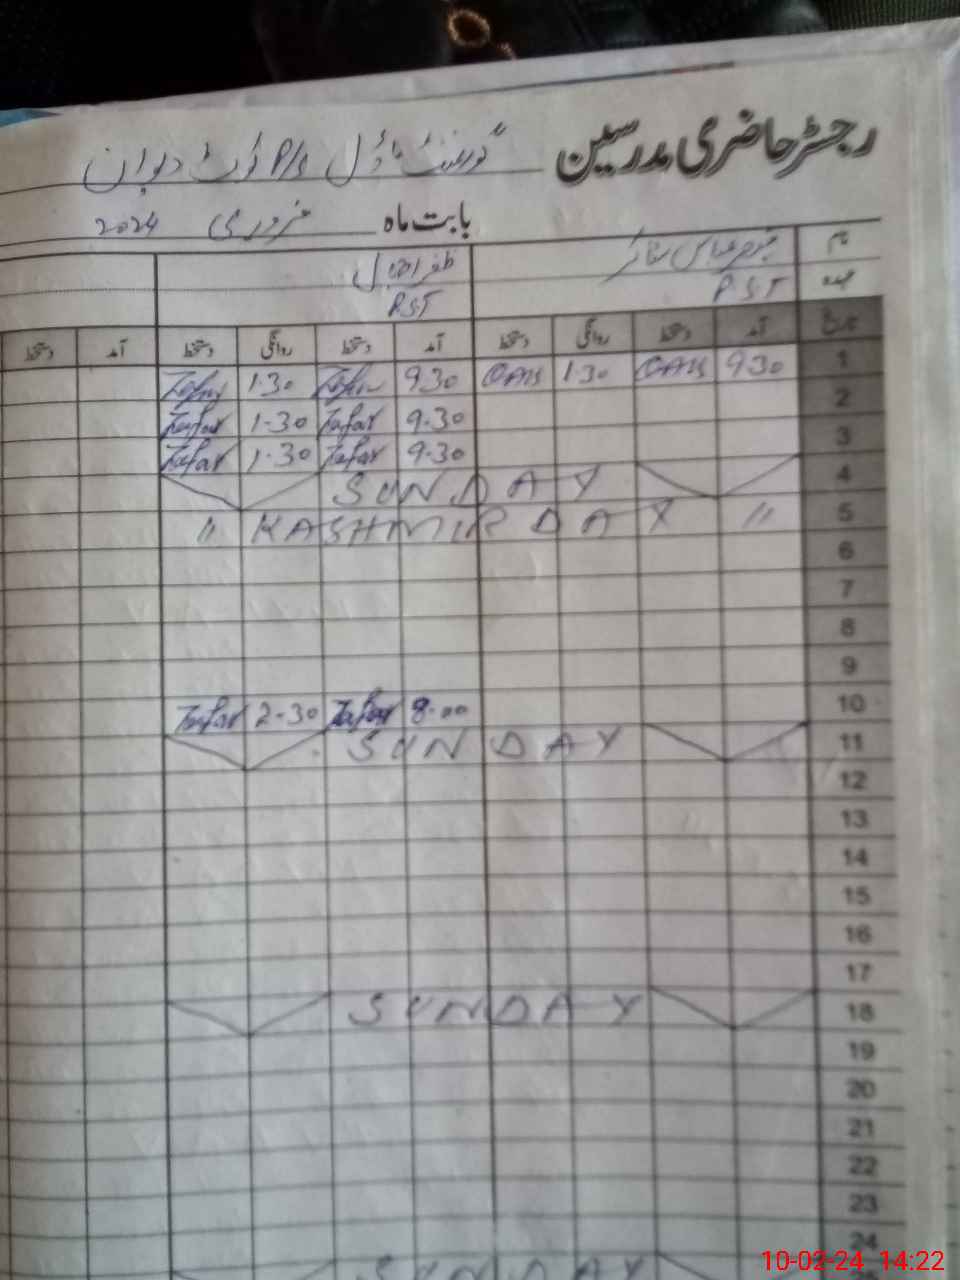 رجسٹر حاضری مدرسین گورنمنٹ ماڈل P/S
بابت ماہ فروری 2024
نام ظفر اقبال
عہدہ P.S.T P.S.T
تاریخ آمد دستخط روانگی دستخط آمد دستخط روانگی دستخط آمد دستخط
1 9.30 1.30 9.30 Zafar 1.30 Zafar
2 9.30 Zafar 1.30 Zafar
3 9.30 Zafar 1.30 Zafar
4 SUNDAY
5 " KASHMIR DAY "
6
7
8
9
10 8.00 Zafar 2.30 Zafar
11 SUNDAY
12
13
14
15
16
17
18 SUNDAY
19
20
21
22
23
24
SUNDAY
10-02-24 14:22